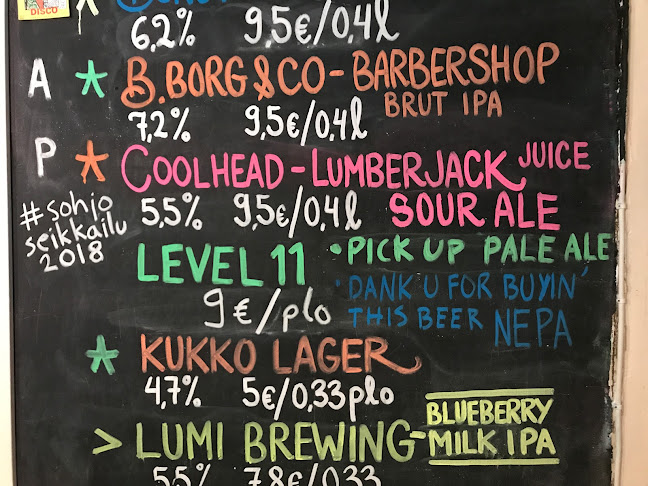 DISCO
6,2% 9,5€/0,4l
A * B.BORG & CO - BARBERSHOP
BRUT IPA
7,2% 9,5€/0,4l
P * COOLHEAD - LUMBERJACK JUICE
5,5% 9,5€/0,4l SOUR ALE
#sohjo
seikkailu
2018
LEVEL 11 • PICK UP PALE ALE
9€/plo
• DANK U FOR BUYIN'
THIS BEER NEPA
* KUKKO LAGER
4,7% 5€/0,33plo
> LUMI BREWING - BLUEBERRY
MILK IPA
5,5% 7,8€/0,33